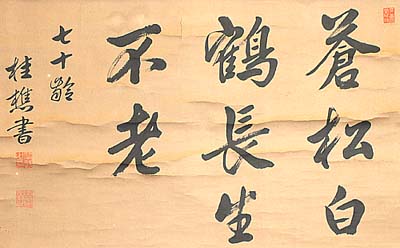 蒼松白
鶴長生
不老
七十齡
桂樵書